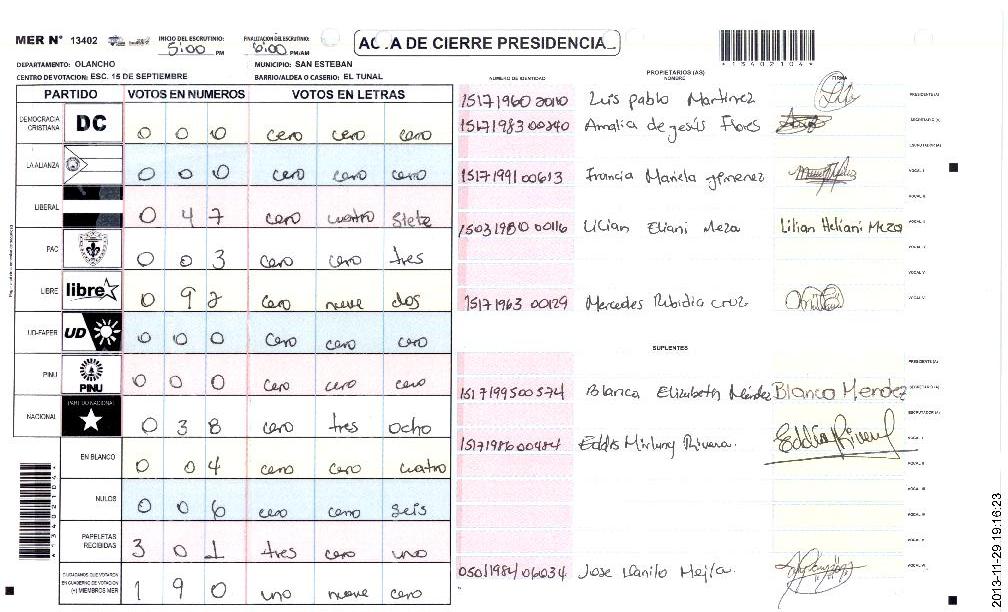 MER N° 13402 INICIO DEL ESCRUTINIO: 5:00 PM FINALIZACIÓN DEL ESCRUTINIO: 6:00 PM/AM
DEPARTAMENTO: OLANCHO MUNICIPIO: SAN ESTEBAN
CENTRO DE VOTACION: ESC. 15 DE SEPTIEMBRE BARRIO/ALDEA O CASERIO: EL TUNAL
DE CIERRE PRESIDENCIA
*13402104*
PARTIDO VOTOS EN NUMEROS VOTOS EN LETRAS
DEMOCRACIA CRISTIANA DC 0 0 0 cero cero cero
LA ALIANZA 0 0 0 cero cero cero
LIBERAL 0 4 7 cero cuatro siete
PAC 0 0 3 cero cero tres
LIBRE libre 0 9 2 cero nueve dos
UD-FAPER UD 0 0 0 cero cero cero
PINU PINU 0 0 0 cero cero cero
NACIONAL PARTIDO NACIONAL 0 3 8 cero tres ocho
EN BLANCO 0 0 4 cero cero cuatro
NULOS 0 0 6 cero cero seis
PAPELETAS RECIBIDAS 3 0 1 tres cero uno
CIUDADANOS QUE VOTARON EN CUADERNO DE VOTACION (+) MIEMBROS MER 1 9 0 uno nueve cero
PROPIETARIOS (AS)
NUMERO DE IDENTIDAD NOMBRE FIRMA
Luis pablo Martinez PRESIDENTE (A)
1517198300840 Amalia de jesús Flores SECRETARIO (A)
ESCRUTADOR (A)
1517199100613 Francia Mariela Jimenez VOCAL I
VOCAL II
Lilian Eliani Meza Lilian Heliani Meza VOCAL III
VOCAL IV
VOCAL V
1517196300129 Mercedes Rubidia cruz VOCAL VI
SUPLENTES
PRESIDENTE (A)
1517199500574 Blanca Elizabeth Méndez Blanca Mendez SECRETARIO (A)
ESCRUTADOR (A)
1517198600484 Rivera. Eddis Rivera VOCAL I
VOCAL II
VOCAL III
VOCAL IV
VOCAL V
Jose Danilo Mejía. VOCAL VI
2013-11-29 19:16:23